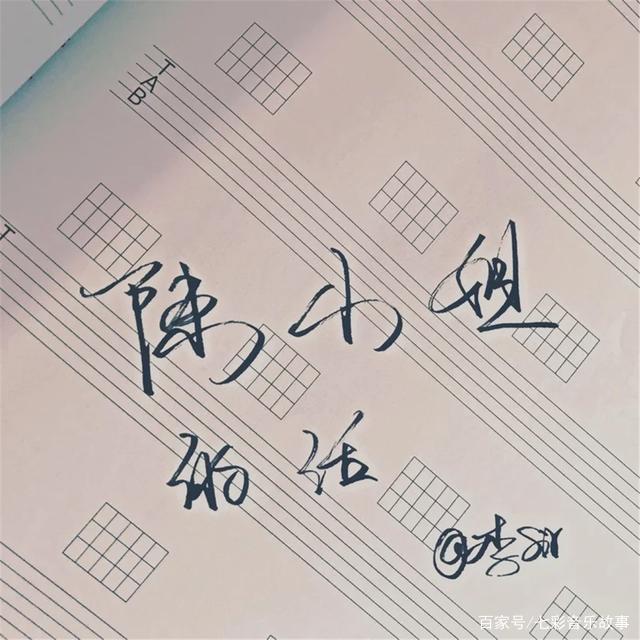 TAB
T
陈小姐
的话
@李sir
百家号/七彩音乐故事